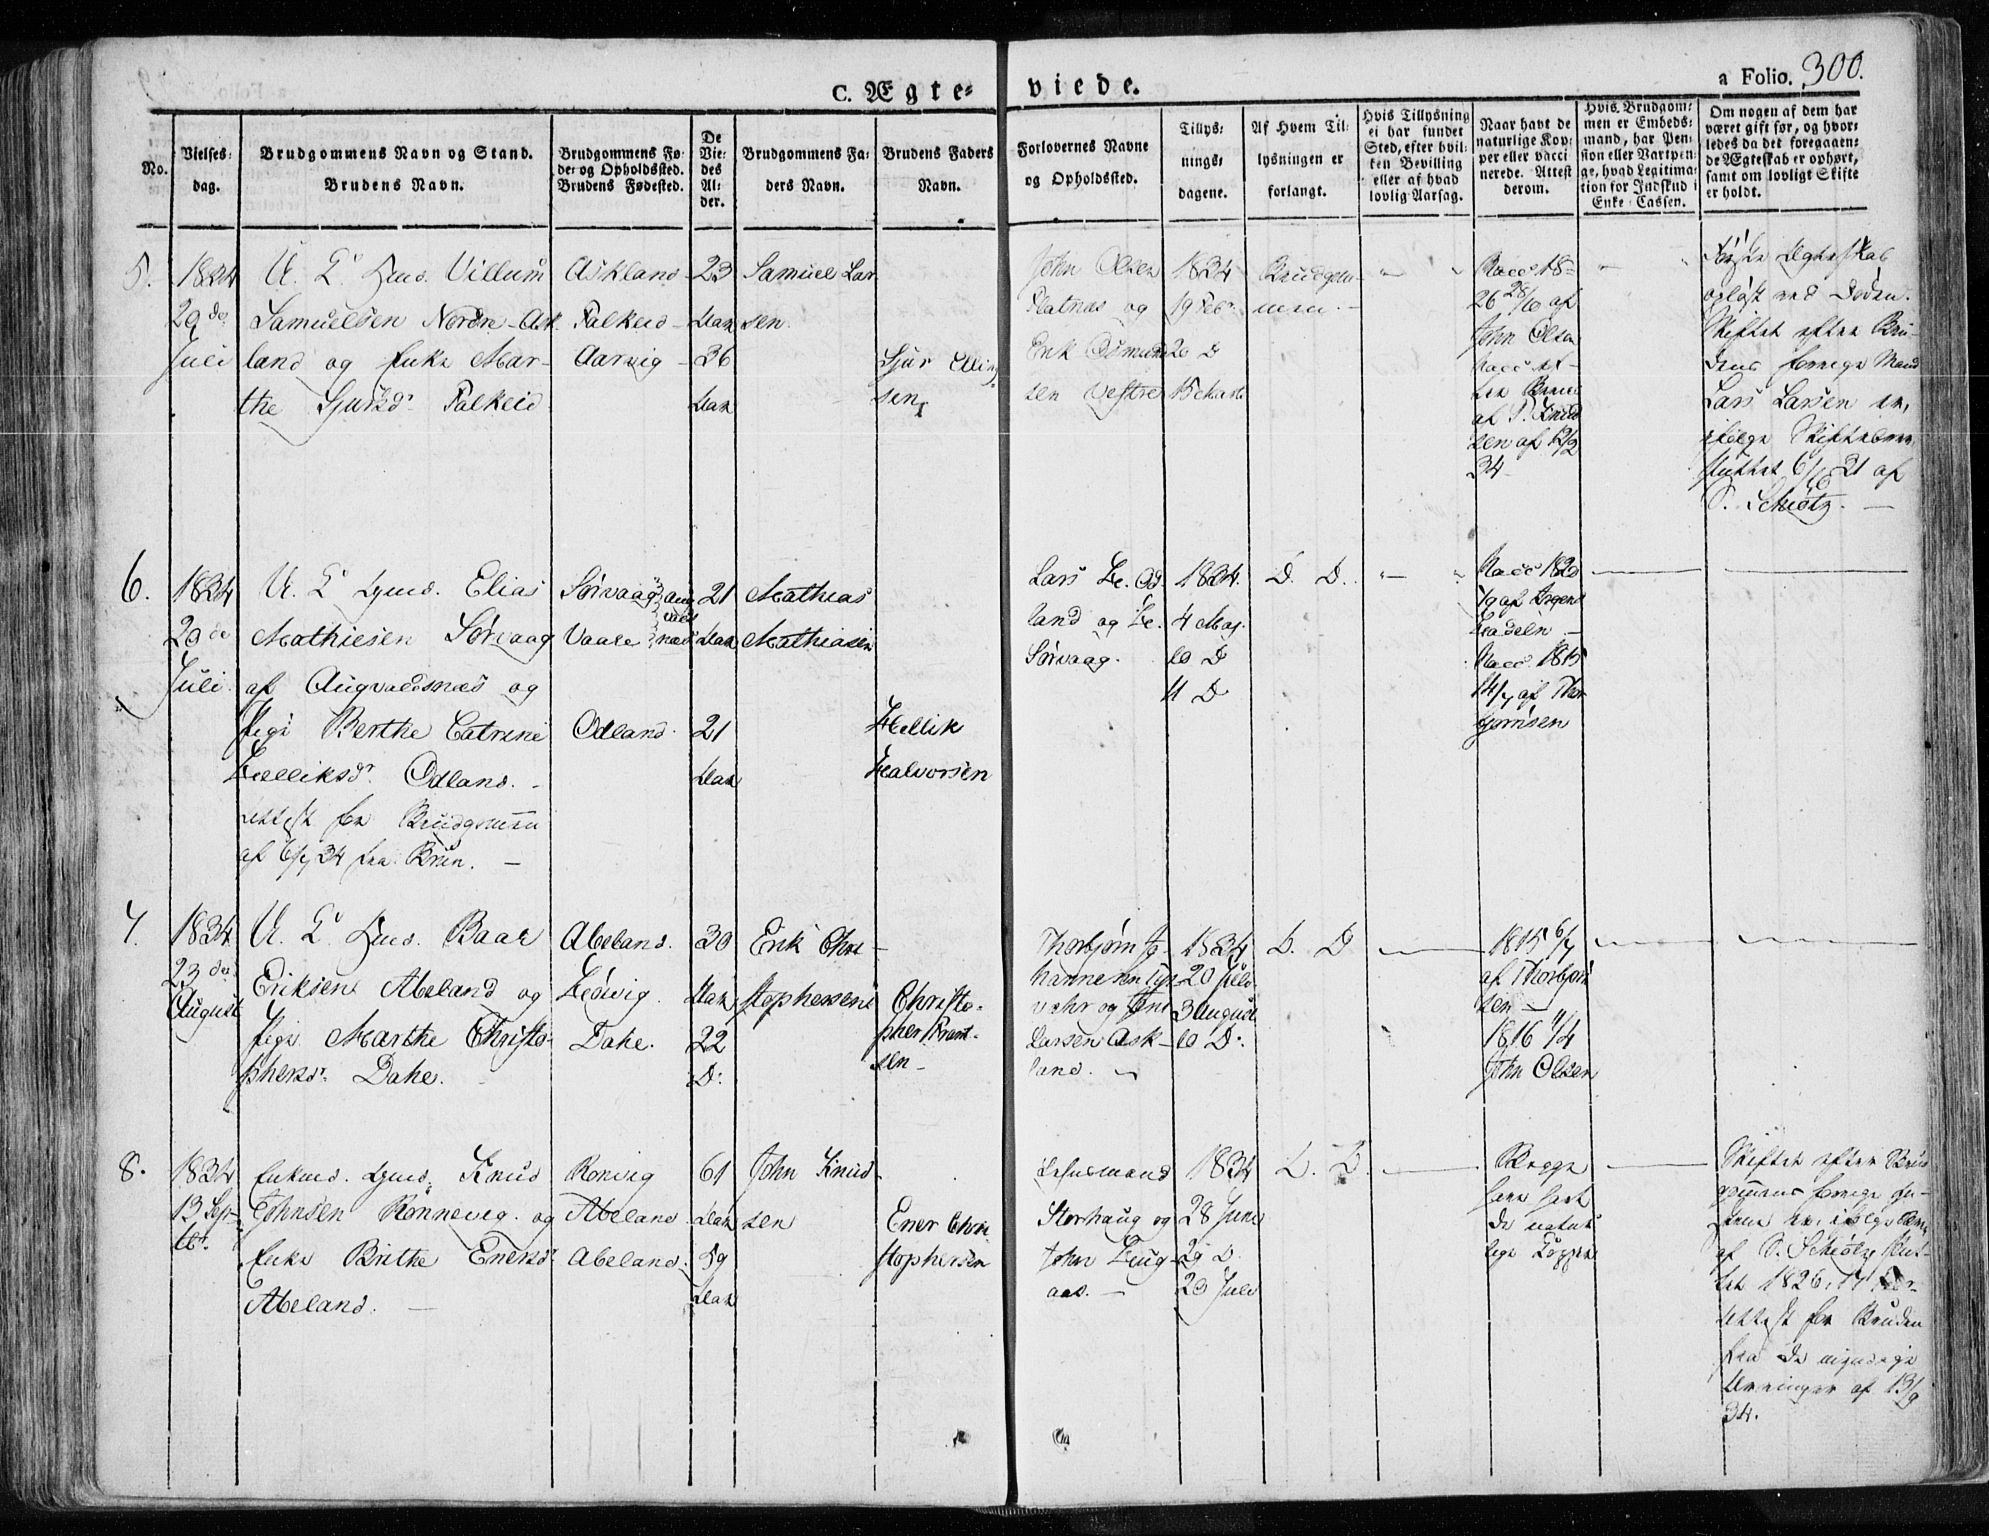 C. Ægte-
viede.
a Folio. 300.
No.
Vielses-
dag.
Brudgommens Navn og Stand.
Brudens Navn.
Brudgommens Fø-
de- og Opholdssted.
Brudens Fødested.
De
Vie-
des
Al-
der.
Brudgommens Fa-
ders Navn.
Brudens Faders
Navn.
Forlovernes Navne
og Opholdssted.
Tillys-
nings-
dagene.
Af Hvem Til-
lysningen er
forlangt.
Hvis Tillysning
ei har fundet
Sted, efter hvil-
ken Bevilling
eller af hvad
lovlig Aarsag.
Naar havt de
naturlige Kop-
per eller vacci-
nerede. Attest
derom.
Hvis Brudgom-
men er Embeds-
mand, har Pen-
sion eller Vartpen-
ge, hvad Legitima-
tion for Indskud i
Enke-Cassen.
Om nogen af dem har
været gift før, og hvor-
ledes da det foregaaen-
de Ægteskab er ophørt,
samt om lovligt Skifte
er holdt.
5.
1834
20 de
Juli
U. C. Villum
Samuelsen Nordre-Ask
land og Enke Mar-
the Sjursdr Falkeid
Askland
Falkeid
Aarvig
23
Aar
36
Aar
Samuel Lar
sen.
Sjur Elling
sen
John Olsen
Flatnæs og
Erik Osmund
sen Vestre
1834
19 Febr.
20 D
Brudgom
men.
Vacc 18
26 28/10 af
John Olsen
Vacc
af P. Knud
sen af 12/2
34
Første Ægteskab
opløst ved Døden.
Skiftet efter Bru-
dens forrige Mand
Lars Larsen er,
ifølge
sluttet 6/10 21 af
S. Schiøtz.
6.
1834
20 de
Juli
U. C. Elias
Mathiesen Sørvaag
af Augvaldsnæs og
Pige Berthe Catrine
Helliksdr. Odland.
Attest for Brudgommen
af 6/7 34 fra Brun.
Sørvaag
Vaare
Odland.
21
Aar
21
Aar
Mathias
Mathiasen
Hellik
Halvorsen
Lars H. Od
land og H.
Sørvaag.
1834.
4 Maj
10 D
11 D
D. D.
Vacc 1820
Vacc 1815
14/7 af Thor
bjørnsen
7.
1834
23 de
August
U. C. Baar
Eriksen Abeland og
Pige Marthe Christo-
phersdr Dahe.
Abeland.
Hedvig.
Dahe.
30
Aar
22
D.
Erik Chri
stophersen
Christo-
pher
sen
Thorbjørn Jo
hannesen
og
Larsen Ask-
land.
1834
20 Juli
3 August
10 D.
D. D
1815 6/7
af Thorbjørn
sen
1816 11/4
John Olsen
8.
1834
13 Sept
br.
Enkmd. Knud
Johnsen Rönnevig og
Enke Brithe Enersdr
Abeland.
Ronvig
Abeland
Abeland.
61
Aar
59
Aar
John Knud
sen
Ener Chri
stophersen
Lehnsmand
Storhaug og
John Haug
aas.
1834
28 Juni
29 D.
20 Juli
D. D.
Begge
have havt
de natur
lige Kopper
Skiftet efter Brud
gommens forrige Hu-
strue er, ifølge
af S. Schiøtz slut-
tet 1826,
Attest for Bruden
fra de myndige
Arvinger af 13/9
34.